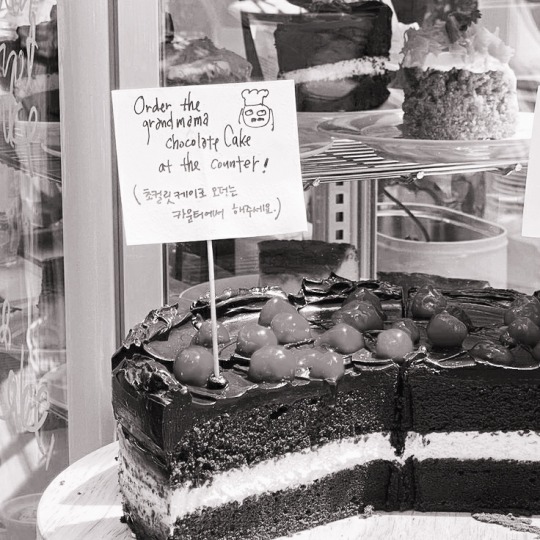 Order the
grandmama
chocolate Cake
at the counter!
(초컬릿 케이크 오더는
카운터에서 해주세요.)